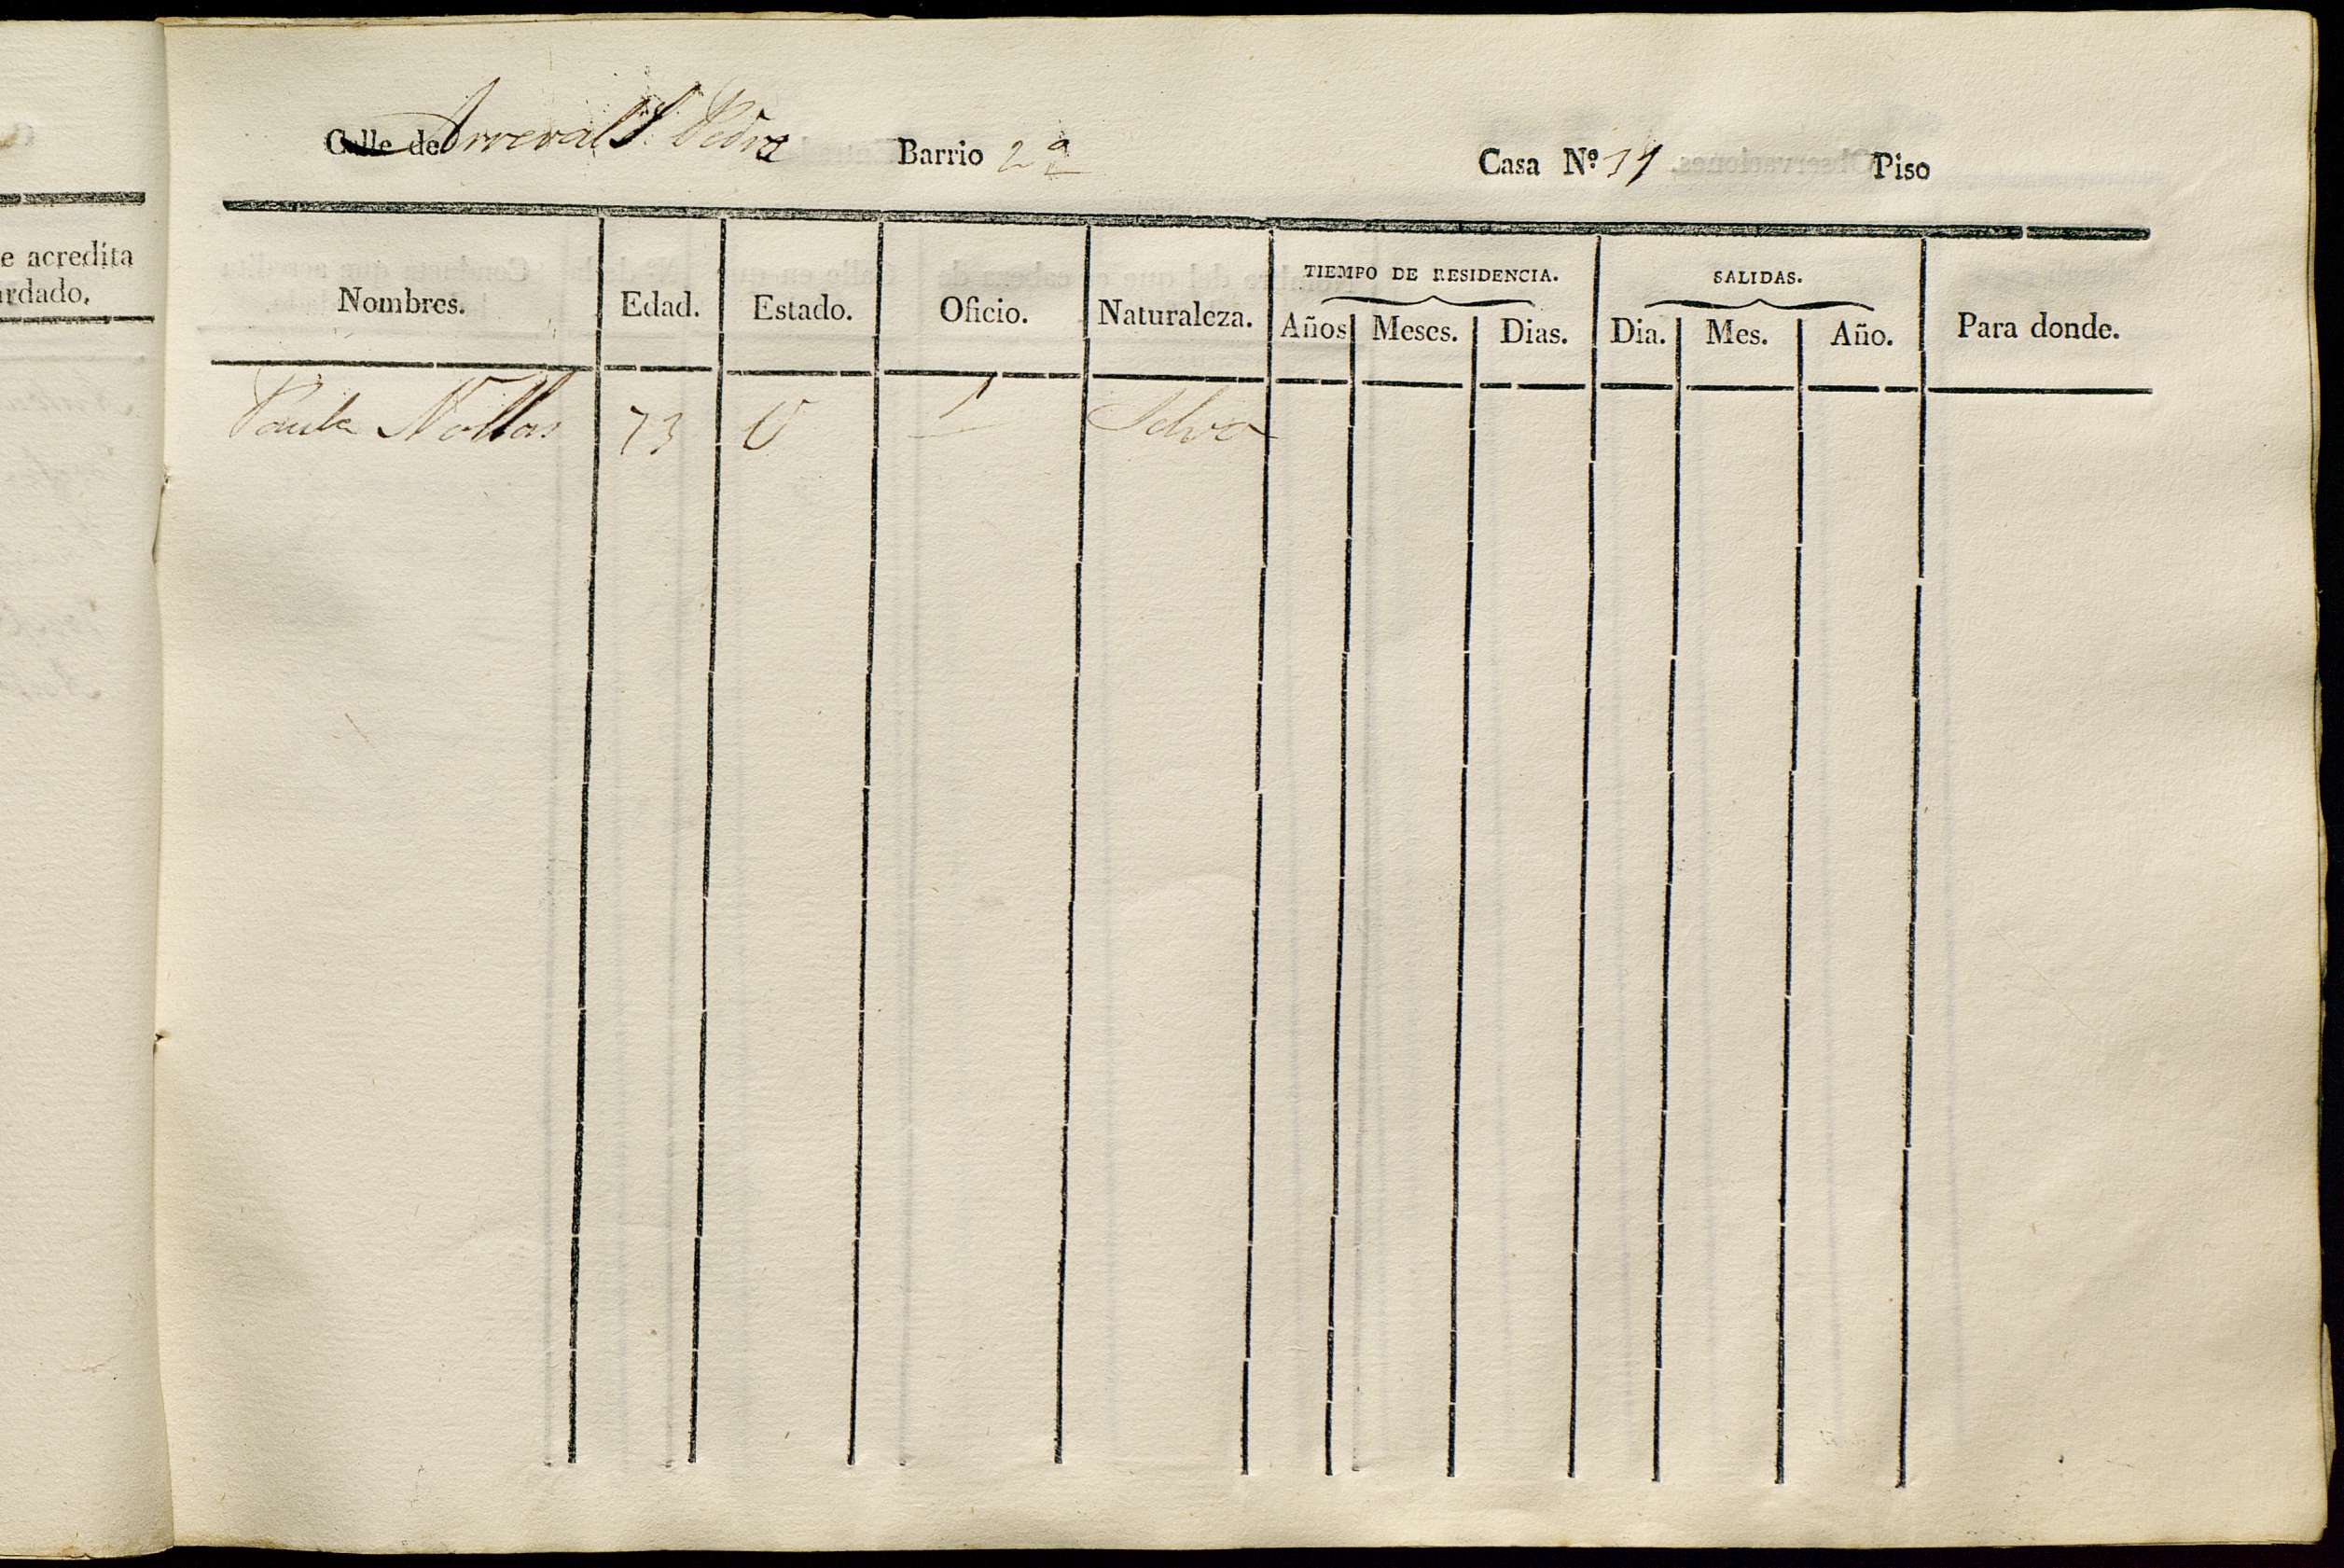 e acredita
ardado.
Calle de Arreval S. Pedro Barrio 2ª Casa Nº Piso
Nombres. Edad. Estado. Oficio. Naturaleza. TIEMPO DE RESIDENCIA. Años Meses. Dias. SALIDAS. Dia. Mes. Año. Para donde.
Paula Nollas 73 V Selva